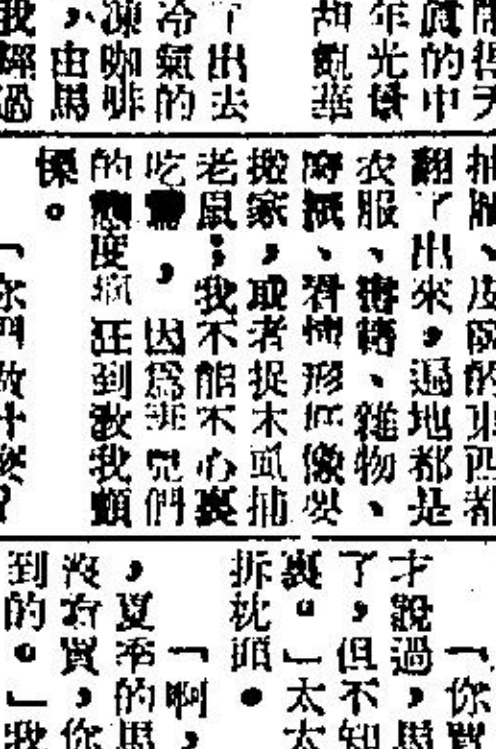 得天
的中
年光景
華
了出去
冷氣的
凍咖啡
，由馬
我經過
抽屜、皮的東西都
翻了出來，遍地都是
衣服、書籍、雜物、
紙、看情形好像要
搬家，或者捉木虱捕
老鼠；我不能不心裏
吃驚，因爲兒們
的態度瘋狂到教我顫
慄。
「你們做什麼？
「你買
才說過，馬
了，但不知
裏。」太太
拆枕頭。
「啊，
，夏季的馬
沒有買，你
到的。」我